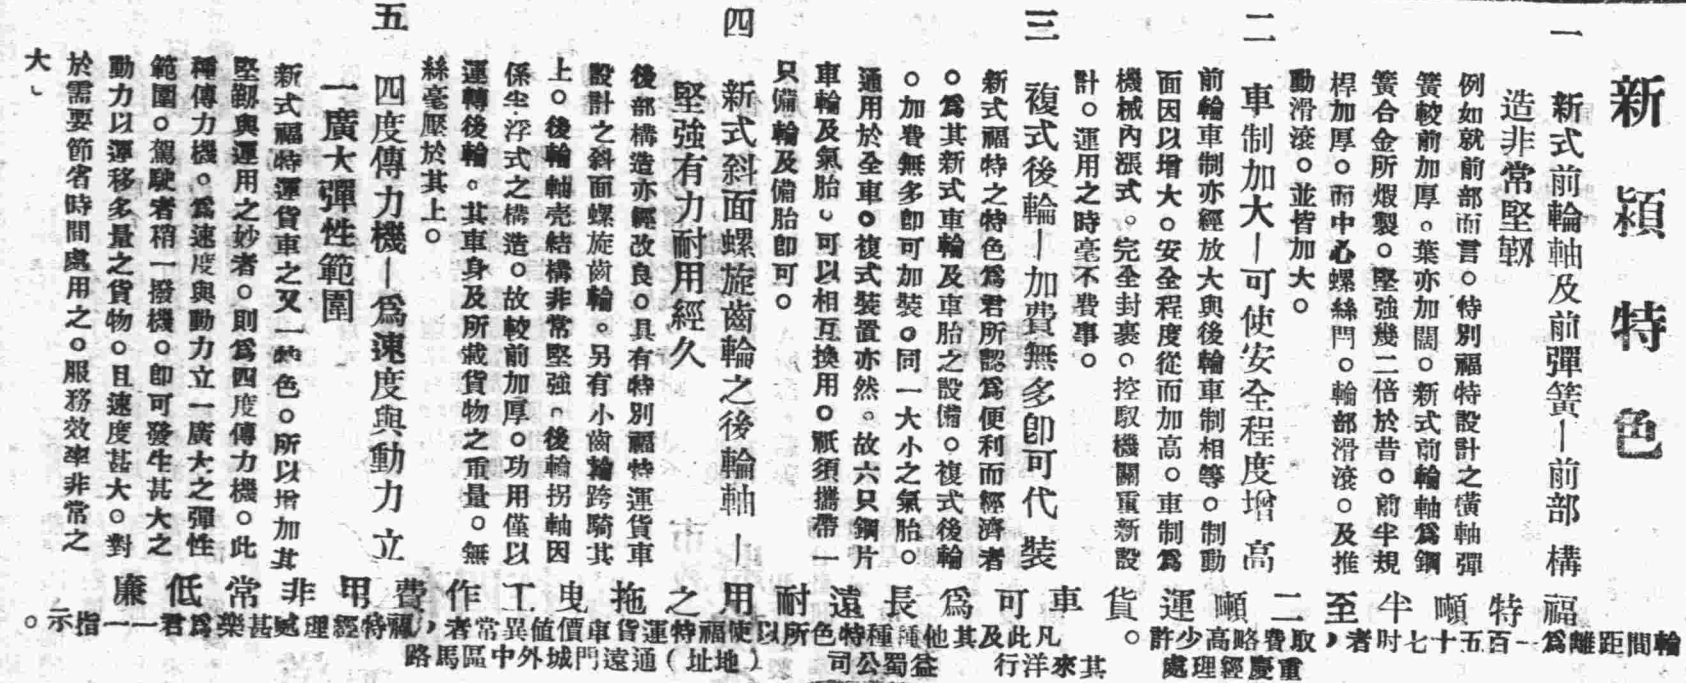 新穎特色
一 新式前輪軸及前彈簧—前部構
造非常堅韌
例如就前部而言。特別福特設計之橫軸彈
簧較前加厚。葉亦加闊。新式前輪軸爲鋼
簧合金所煆製。堅強幾二倍於昔。前半規
桿加厚。而中心螺絲門。輪部滑滾。及推
動滑滾。並皆加大。
二 車制加大—可使安全程度增高
前輪車制亦經放大與後輪車制相等。制動
面因以增大。安全程度從而加高。車制爲
機械內漲式。完全封裹。控馭機關重新設
計。運用之時毫不費事。
三 複式後輪—加費無多卽可代裝
新式福特之特色爲君所認爲便利而經濟者
。爲其新式車輪及車胎之設備。複式後輪
。加費無多卽可加裝。同一大小之氣胎。
通用於全車。複式裝置亦然。故六只鋼片
車輪及氣胎。可以相互換用。祇須攜帶一
只備輪及備胎卽可。
四 新式斜面螺旋齒輪之後輪軸—
堅強有力耐用經久
後部構造亦經改良。具有特別福特運貨車
設計之斜面螺旋齒輪。另有小齒輪跨騎其
上。後輪軸壳結構非常堅強。後輪拐軸因
係半浮式之構造。故較前加厚。功用僅以
運轉後輪。其車身及所載貨物之重量。無
絲毫壓於其上。
五 四度傳力機—爲速度與動力立
一廣大彈性範圍
新式福特運貨車之又一特色。所以增加其
堅韌與運用之妙者。則爲四度傳力機。此
種傳力機。爲速度與動力立一廣大之彈性
範圍。駕駛者稍一撥機。卽可發生甚大之
動力以運移多量之貨物。且速度甚大。對
於需要節省時間處用之。服務效率非常之
大、
福特噸半至二噸運貨車可爲長遠耐用之拖曳工作費用非常低廉
輪間距離爲一百五十七吋者，取費略高少許。
凡此及其他種種特色所以使福特運貨車價值異常者，福特經理處甚樂爲君一一指示。
重慶經理處
其來洋行
益蜀公司
（地址）通遠門城外中區馬路